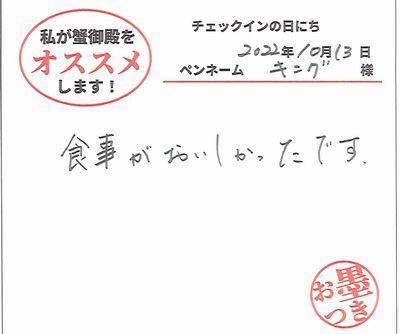 私が蟹御殿を
オススメ
します！
チェックインの日にち
2022年10月13日
ペンネーム キング 様
食事がおいしかったです.
お墨
つき